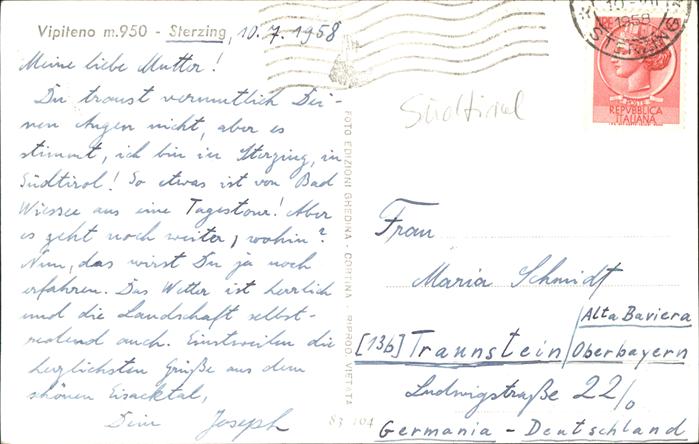 Vipiteno m.950 - Sterzing, 10.7.1958
Meine liebe Mutter!
Du traust vermutlich Dei-
nen Augen nicht, aber es
stimmt, ich bin in Sterzing, in
Südtirol! So etwas ist von Bad
Wiessee aus eine Tagestour! Aber
es geht noch weiter, wohin?
Nun, das wirst Du ja noch
erfahren. Das Wetter ist herrlich
und die Landschaft selbst-
redend auch. Einstweilen die
herzlichsten Grüße aus dem
schönen Eisacktal,
Dein Joseph
FOTO EDIZIONI GHEDINA - CORTINA - RIPROD. VIETATA
83 104
Südtirol
1958
STERZING
REPVBBLICA
ITALIANA
Frau
Maria Schmidt
Alta Baviera
[13b] Traunstein/Oberbayern
Ludwigstraße 22/
Germania - Deutschland